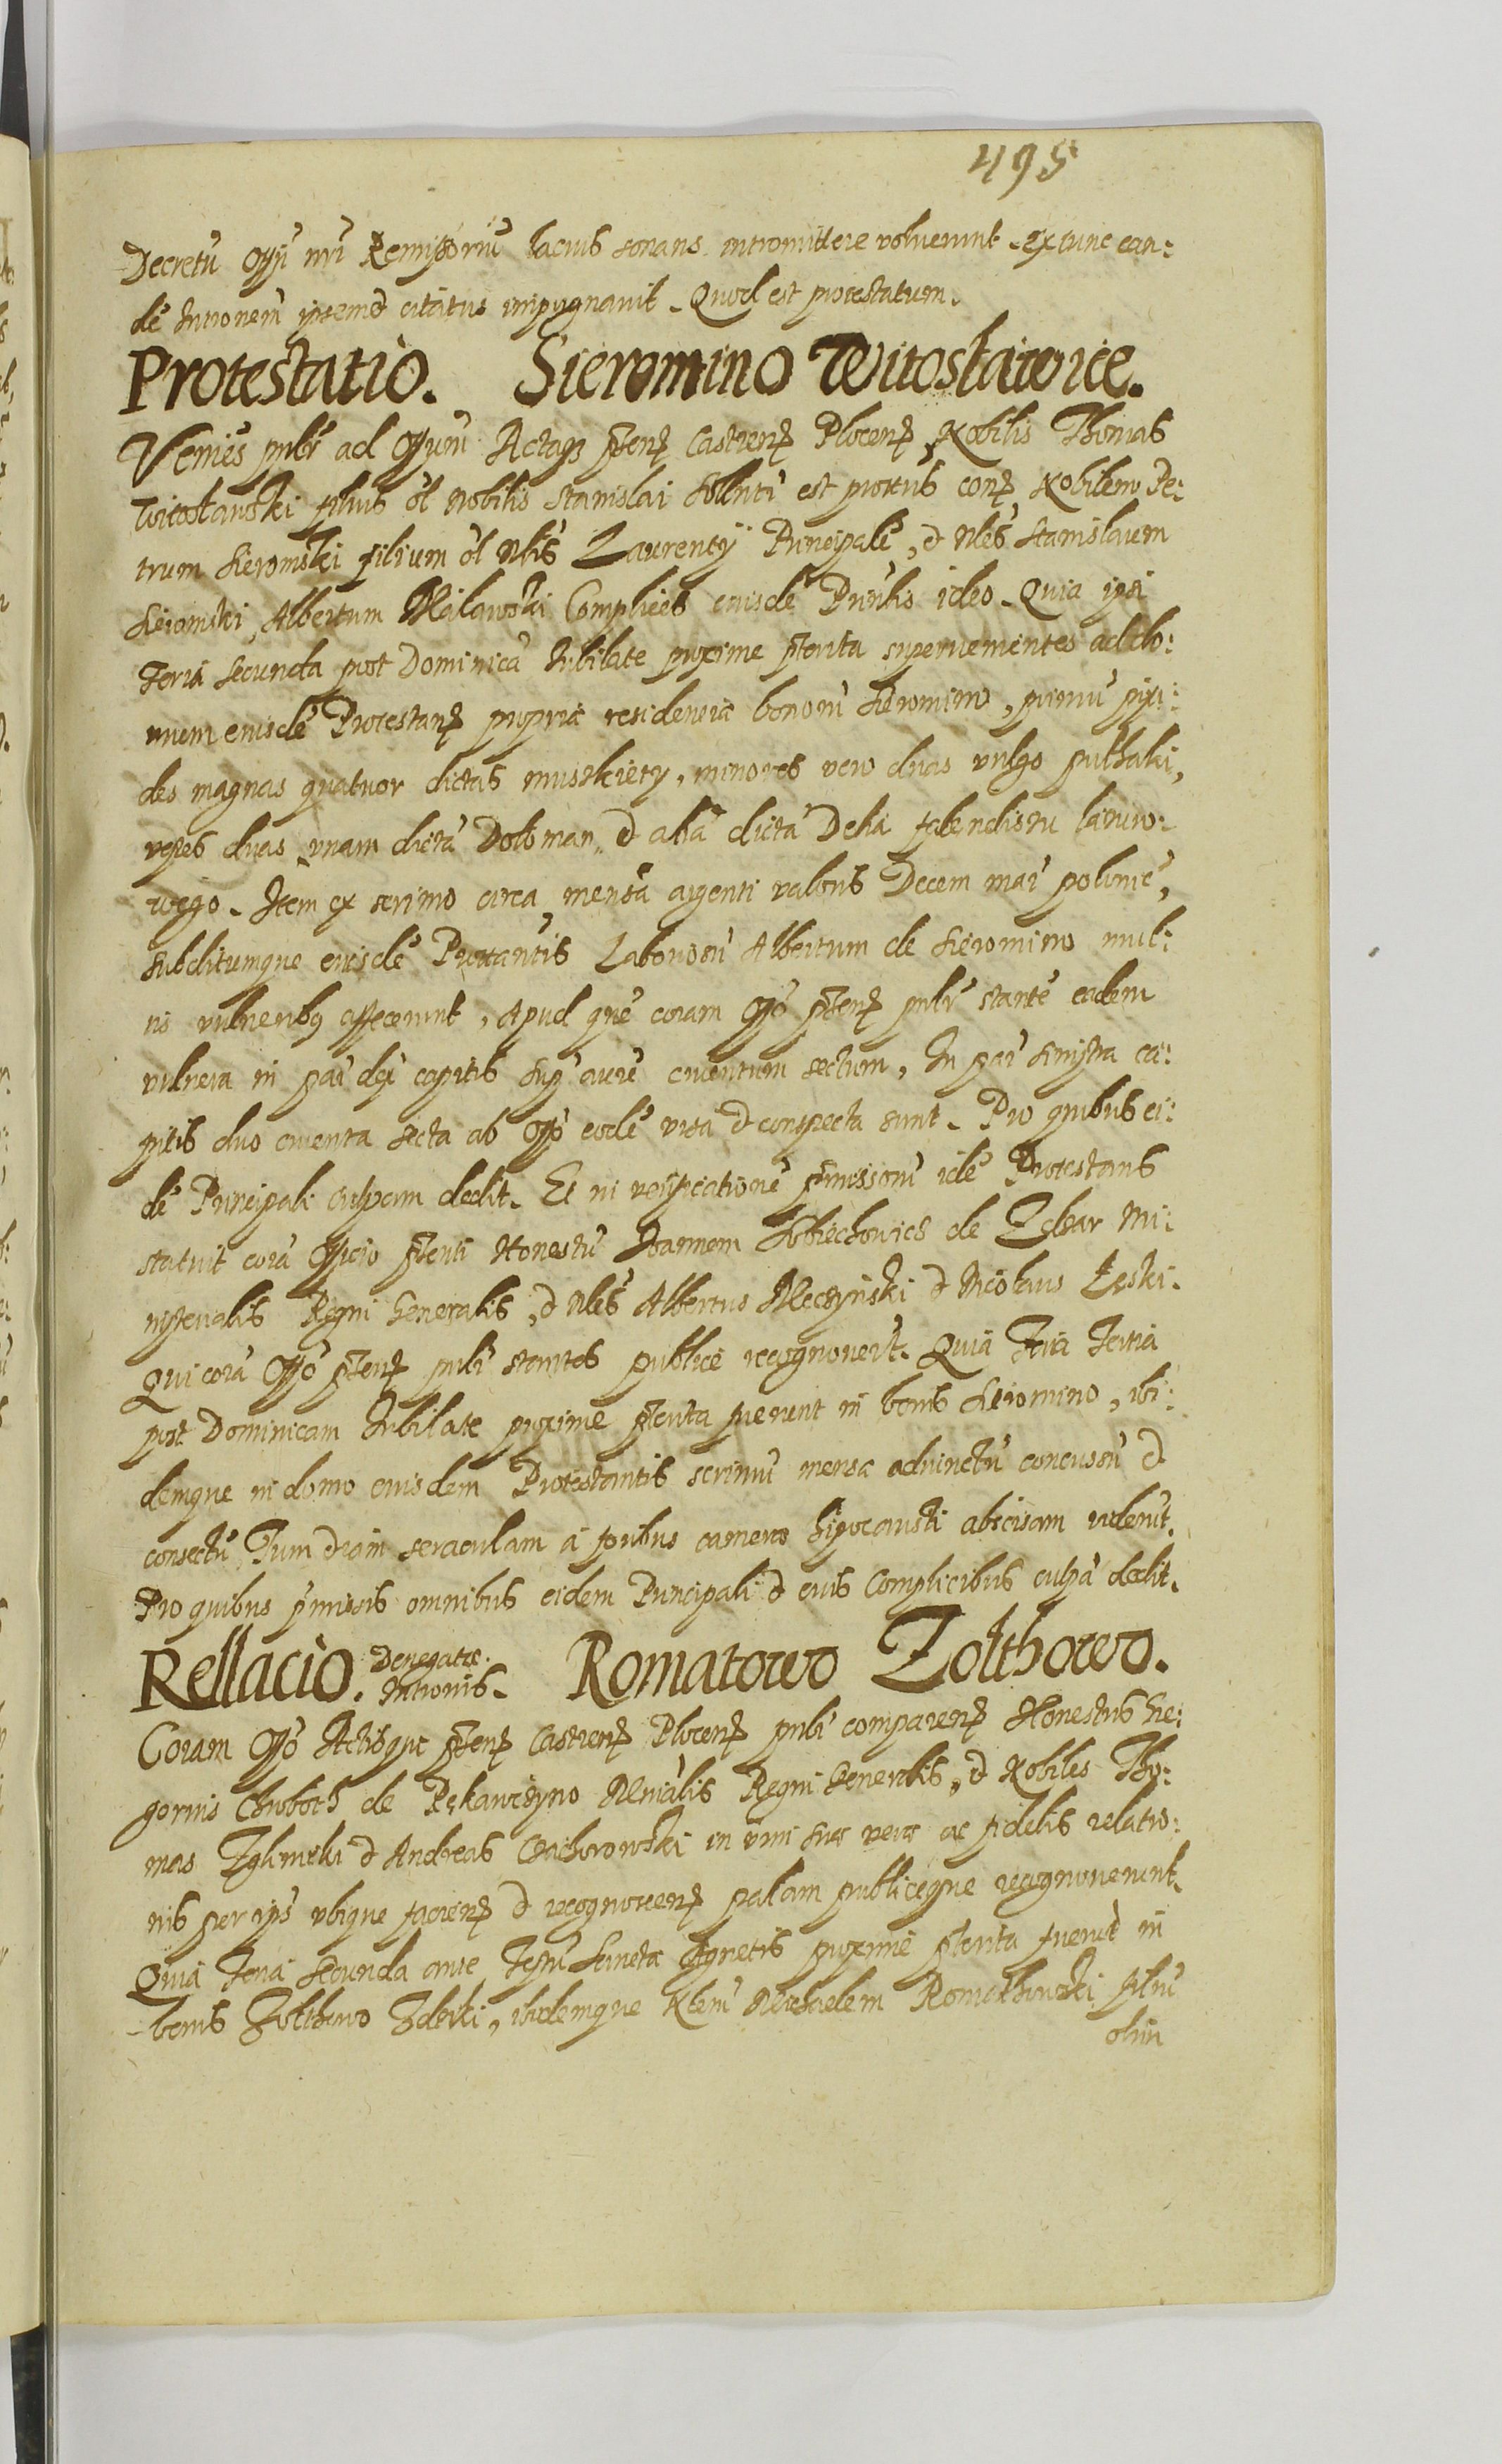 495
Decretũ Offÿ nrĩ Remissoriũ lacius sonans intromittere voluerunt. Extunc ean:
dẽ Intronem̃ ipsemet citatus impugnavit. Quod est protestatum.
Protestatio. Sieromino Witosławice.
Veniẽs publr̃ ad Offium Actaq; pñtia Castren̄ Plocen̄ Nobilis Thomas
Witosławski filius ol̃ Nobilis Stanislai sollntr̃ est prottus con̄ Nobilem Pe:
trum Sieromski filium ol̃ Nlis Laurentÿ Principalẽ, et Nles Stanislaum
Sieromski, Albertum Malawski Complices eiusdẽ Prinlis ideo. Quia ipsi
Feria secunda post Dominicã Iubilate proxime pr̃terita supervenientes ad do:
mum eiusdẽ Protestan̄ propriæ residenciæ bonorũ Sieromino, primũ pixi:
des magnas quatuor dictas muszkiety, minores vero duas vulgo pulhaki,
vestes duas unam dictã Doloman, et aliã dictã Delia falendissu lazuro:
wego. Item ex scrinio circa mensã argenti valoris Decem mar̃ poloniẽ,
subditumque eiusdẽ Prottantis Laboriosũ Albertum de Sieromino mul:
tis vulneribq; affecerunt, Apud quẽ coram Offo pñten̄ publr̃ stantẽ eadem
vulnera in par̃ dex̃ capitis sup̃ aurẽ cruentum sectum, In par̃ sinistra ca:
pitis duo cruenta secta ab Offo eodẽ visa et conspecta sunt. Pro quibus ei:
dẽ Principali culpam dedit. Et in verificationẽ p̃missorũ idẽ Protestans
statuit corã Officio pñti Honestũ Ioannem Sobiechowicz de Mi:
nisterialis Regni Generalis, et Nles Albertus Meczyński et Nicolaus Łęski.
Qui corã Offo pñten̄ publr̃ stantes publice recognoverũt. Quia Feria Tertia
post Dominicam Iubilate proxime pr̃terita fuerunt in bonis Sieromino, ibi:
demque in domo eiusdem Protestantis scriniũ mensæ adiunctũ concussũ et
consectũ, Tum etiam seraculam a foribus cameræ hipocausti abscisam viderũt.
Pro quibus p̃missis omnibus eidem Principali et eius Complicibus culpã dedit.
Rellacio. Denegatæ Intronis. Romatowo Zolthowo.
Coram Offo Actisque pñten̄ Castren̄ Plocen̄ publr̃ comparen̄ Honestus Gre:
gorius Chuboth de Pękawczyno Mnialis Regni Generalis, et Nobiles Tho:
mas Zglinicki et Andreas Czachorowski in vim suæ veræ ac fidelis relatio:
nis per ips̃ ubique facien̄ et recognoscen̄ palam publiceque recognoverunt.
Quia Feria secunda ante Festũ Sanctæ Agnetis proxime pr̃terita fuerũt in
bonis Zolthowo ibidemque Nlem̃ Michaelem Romathowski filiũ
olim